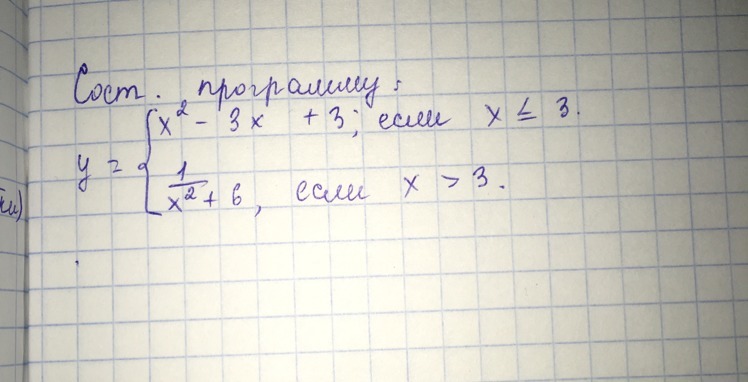 Сост. программу:
x² - 3x + 3; если x ≤ 3.
y =
1
x² + 6, если x > 3.